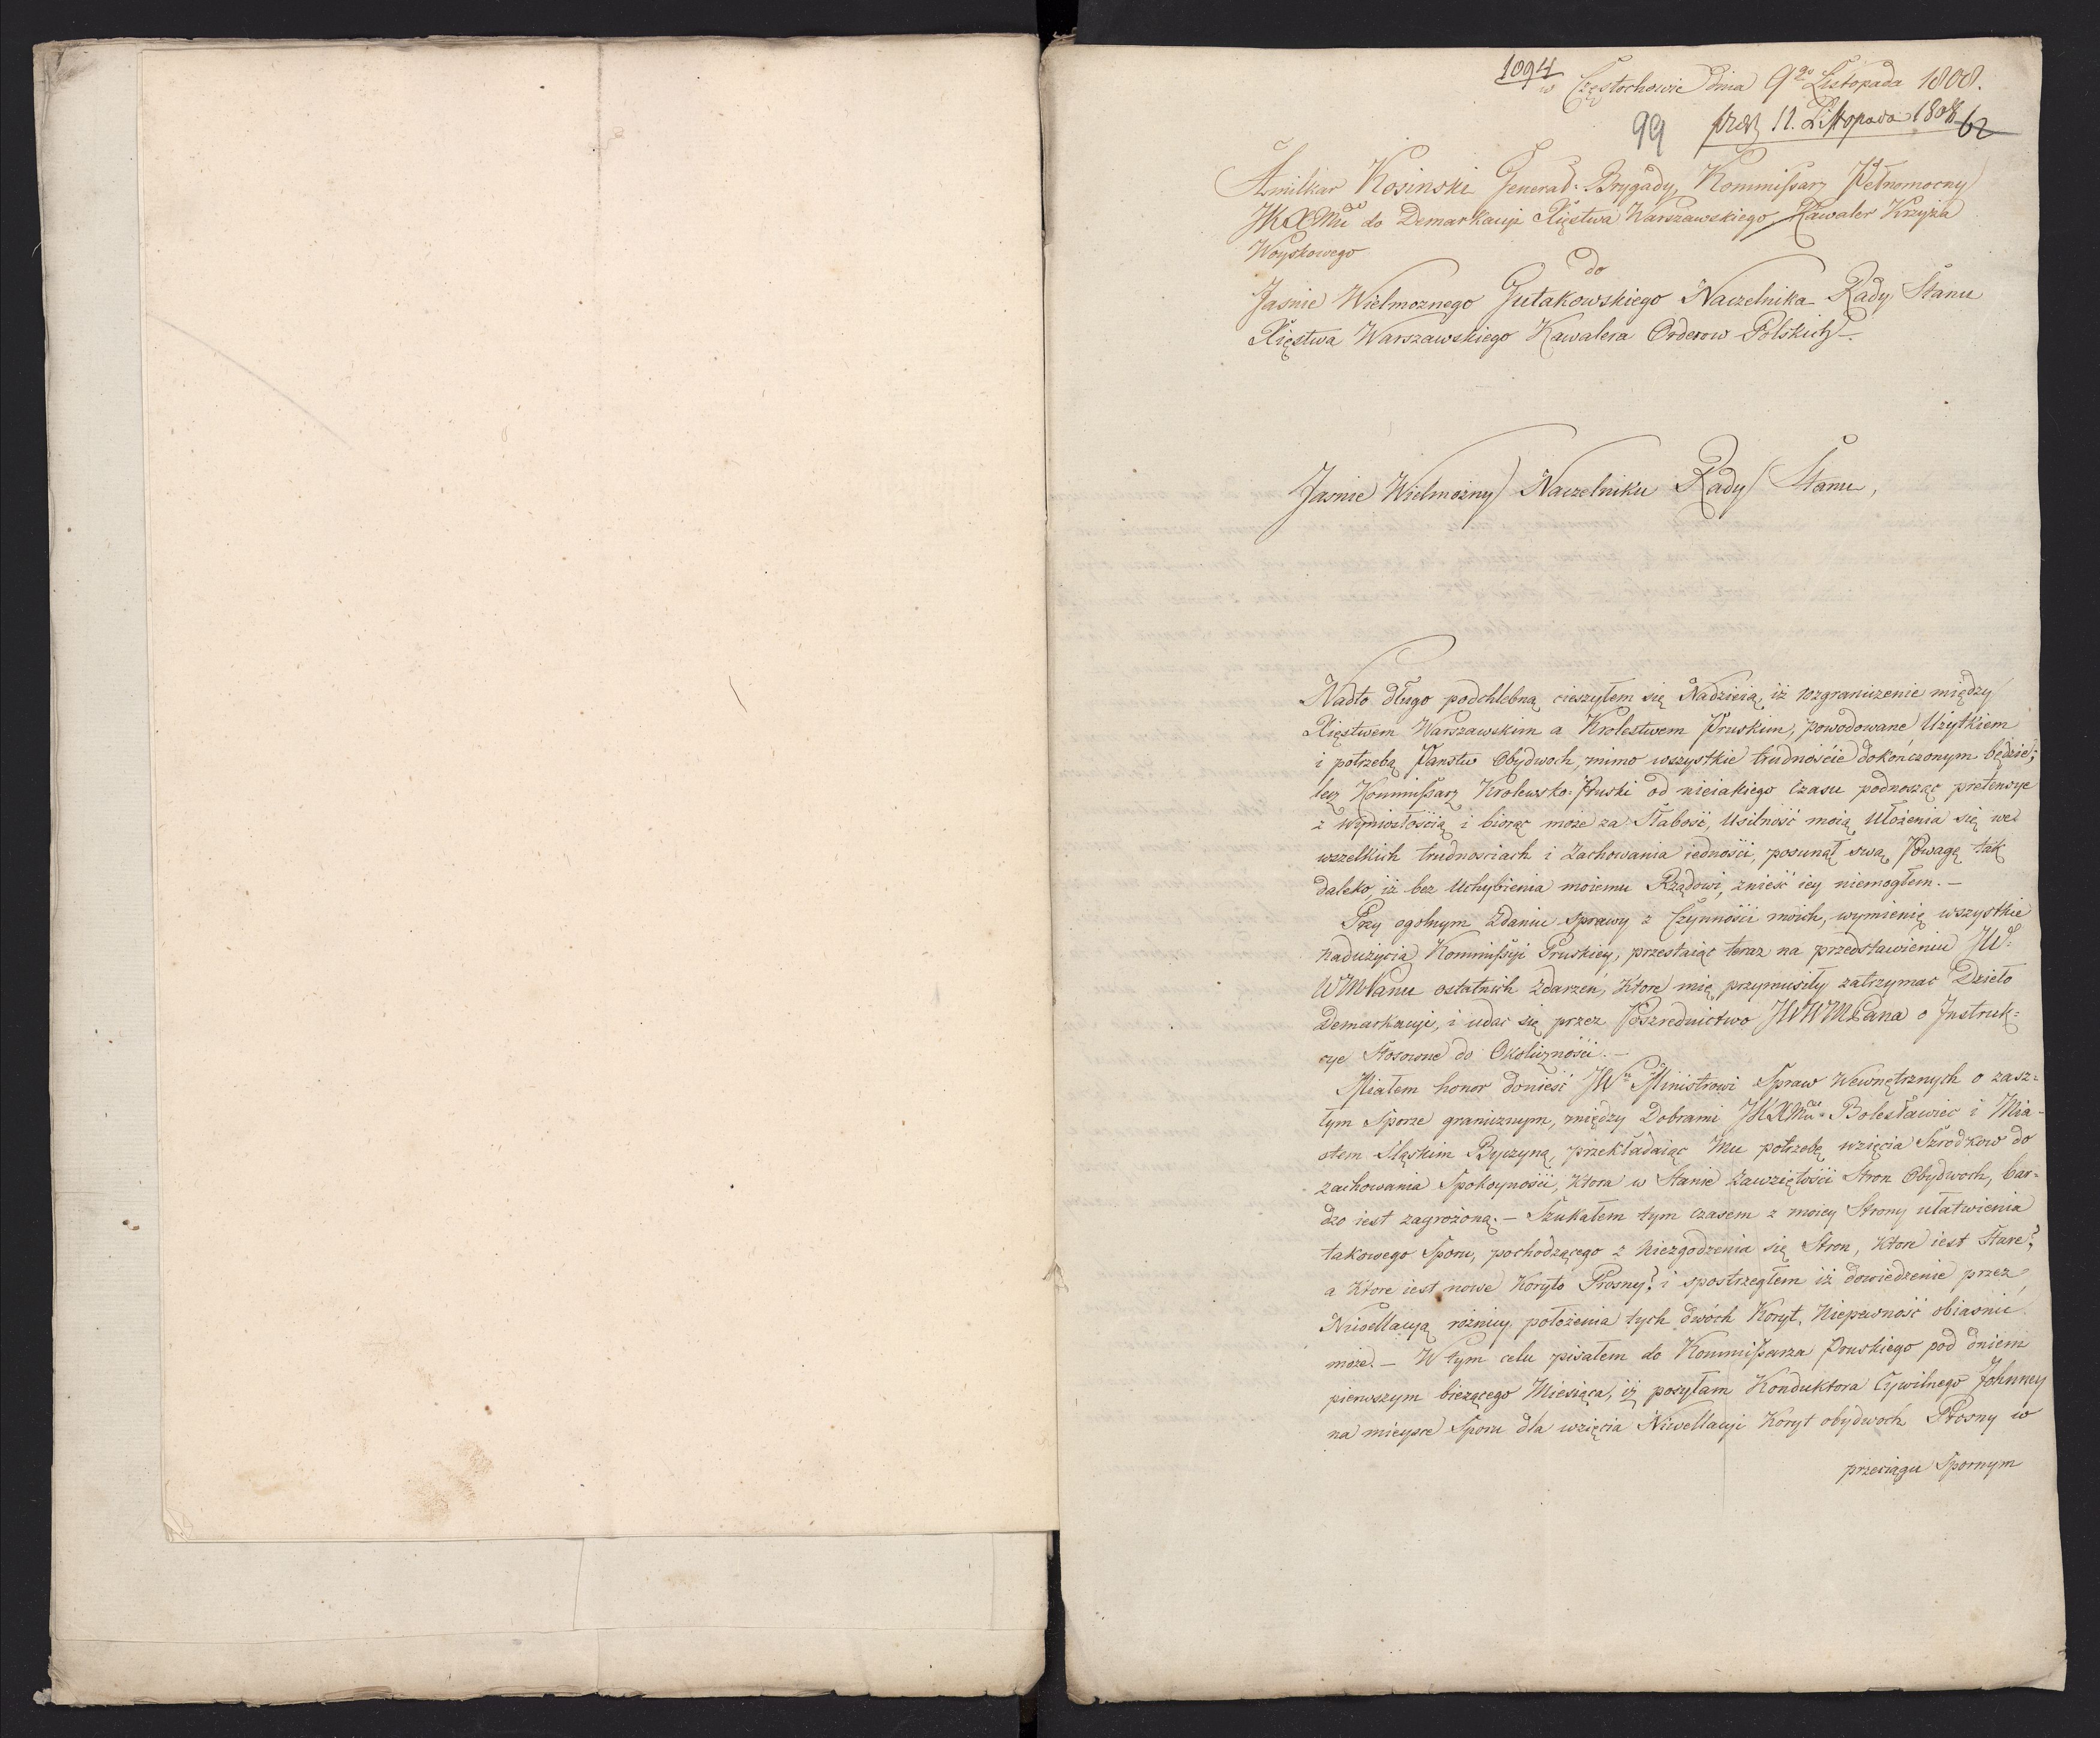 1094
w Częstochowie Dnia 9go Listopada 1808.
99 prez 12. Listopada 1808 62
Amilkar Kosinski Generał-Brygady, Kommissarz Pełnomocny
JKXMci do Demarkacyi Xięstwa Warszawskiego Kawaler Krzyża
Woyskowego
do
Jasnie Wielmoznego Gutakowskiego Naczelnika Rady Stanu
Xięstwa Warszawskiego Kawalera Orderow Polskich.
Jasnie Wielmożny Naczelniku Rady Stanu,
Nadto długo podchlebną cieszyłem się Nadzieią, iż rozgraniczenie między
Xięstwem Warszawskim a Krolestwem Pruskim, powodowane Użytkiem
i potrzebą Panstw Obydwoch, mimo wszystkie trudnoście dokończonym będzie;
lecz Kommissarz Krolewsko-Pruski od nieiakiego czasu podnosząc pretensye
z wyniosłością i biorąc może za Słabość, Usilność moią Ułożenia się we
wszelkich trudnosciach i Zachowania iedności, posunął swą Powagę tak
daleko, iż bez Uchybienia moiemu Rządowi, znieść iey niemogłem. —
Przy ogolnym Zdaniu sprawy z Czynności moich, wymienię wszystkie
nadużycia Kommissyi Pruskiey, przestaiąc teraz na przedstawieniu JW.
WMPanu ostatnich Zdarzeń, które mię przymusiły zatrzymac Dzieło
Demarkacyi, i udac się przez Poszrednictwo JWWMPana o Instruk-
cye Stosowne do Okoliczności. —
Miałem honor donieść JWu Ministrowi Spraw Wewnętrznych o zasz-
łym Sporze granicznym, między Dobrami JKXMci Bolesławiec i Mia-
stem Sląskim Byczyną, przekładaiąc Mu potrzebę wzięcia Szrodkow do
zachowania Spokoyności, Ktora w Stanie Zawziętości Stron Obydwoch, bar-
dzo iest zagrożoną. — Szukałem tym czasem z moiey Strony ułatwienia
takowego Sporu, pochodzącego z Niezgodzenia się Stron, Ktore iest Stare?
a Ktore iest nowe Koryto Prosny? i spostrzegłem iż dowiedzenie przez
Niwellacyą różnicy położenia tych dwóch Koryt, Niepewność obiasnic
może. — W tym celu pisałem do Kommissarza Pruskiego pod dniem
pierwszym bieżącego Miesiąca, iż posyłam Konduktora Cywilnego Johnney
na mieysce Sporu dla wzięcia Niwellacyi Koryt obydwoch Prosny w
przeciągu Spornym